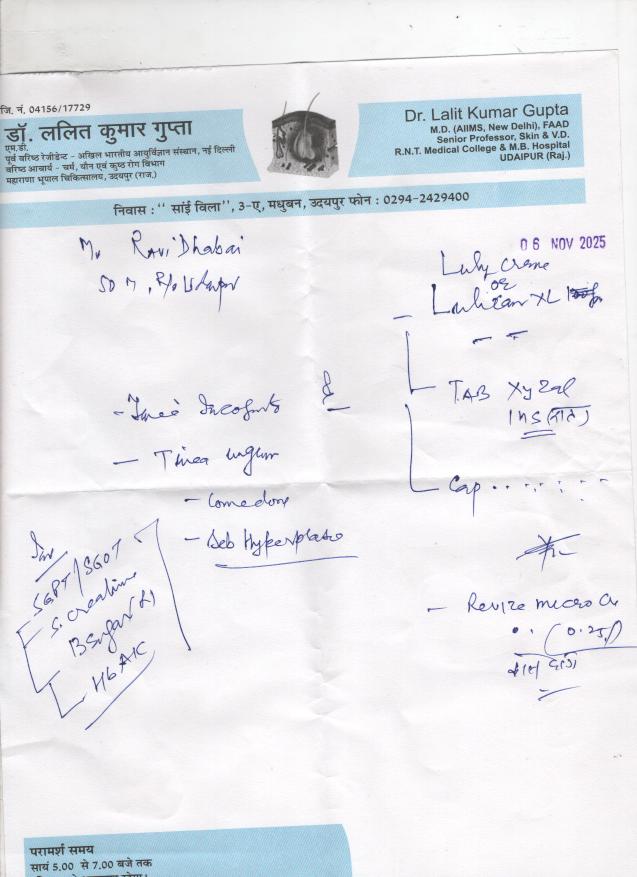 जि. नं. 04156/17729
डॉ. ललित कुमार गुप्ता
एम.डी.
पूर्व वरिष्ठ रेजीडेन्ट - अखिल भारतीय आयुर्विज्ञान संस्थान, नई दिल्ली
वरिष्ठ आचार्य - चर्म, यौन एवं कुष्ठ रोग विभाग
महाराणा भूपाल चिकित्सालय, उदयपुर (राज.)
Dr. Lalit Kumar Gupta
M.D. (AIIMS, New Delhi), FAAD
Senior Professor, Skin & V.D.
R.N.T. Medical College & M.B. Hospital
UDAIPUR (Raj.)
निवास : '' सांई विला'', 3-ए, मधुबन, उदयपुर फोन : 0294-2429400
06 NOV 2025
Mr Ravi Dhabai
SDM, R/o Udaipur
- Tinea Incognito
- Tinea
- Comedone
- Seb Hyperplasia
Inv
SGPT/SGOT
S. Creatinine
B Sugar
HbA1C
Luly Creme
or
- Lulican XL
TAB Xyzal
1 HS (रात)
Cap
- Revize micro
(0.25)
परामर्श समय
सायं 5.00 से 7.00 बजे तक